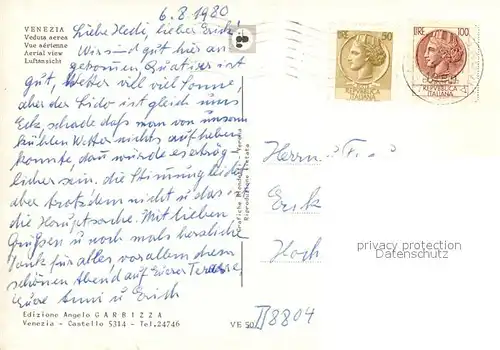 6.8.1980
VENEZIA
Veduta aerea
Vue aérienne
Aerial view
Luftansicht
Liebe Hedi, lieber Erich!
Wir sind gut hier an
gekommen Quatier ist
gut, Wetter viel viel Sonne,
aber der Lido ist gleich ums
Eck, schade daß man von unserm
kühlen Wetter nichts aufheben
konnte, dann würde es erträg
licher sein. die Stimmung
aber trotzdem nicht u das ist
die Hauptsache. Mit lieben
Grüßen u noch mals herzliche
Dank für alles, vor allem dem
schönen Abend auf Eurer Terasse,
Eure Anni u Erich
Edizione Angelo GARBIZZA
Venezia - Castello 5314 - Tel.24746
VE 50
Riproduzione vietata
LIRE 50
REPUBBLICA
ITALIANA
LIRE 100
REPUBBLICA
ITALIANA
Herrn F.
Erik
Hoch
privacy protection
Datenschutz
II 8804